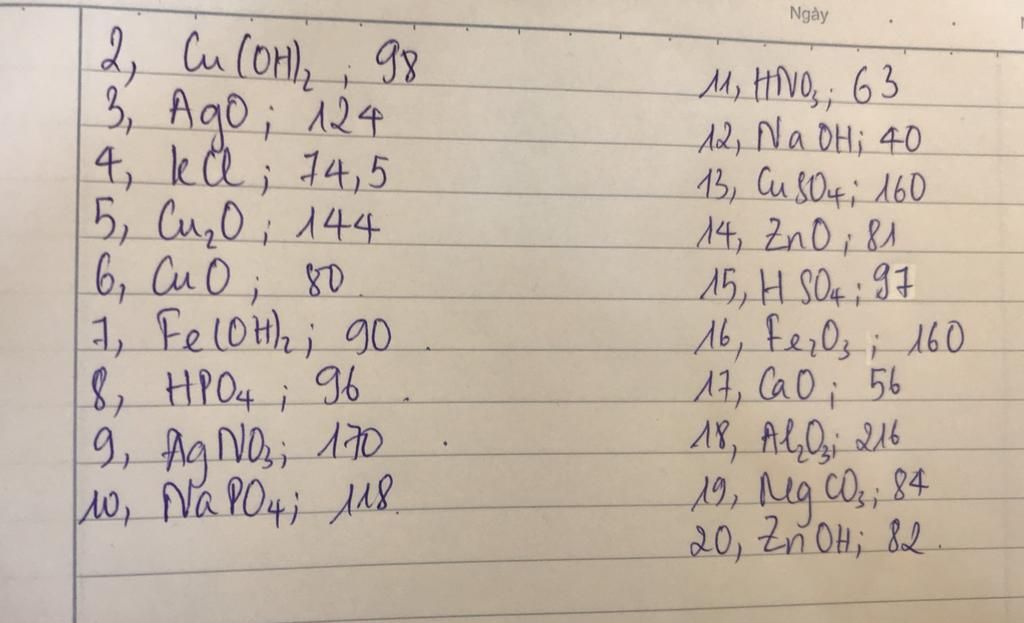 Ngày
2, Cu(OH)₂ ; 98
3, AgO ; 124
4, kCl ; 74,5
5, Cu₂O ; 144
6, CuO ; 80
7, Fe(OH)₂ ; 90
8, HPO₄ ; 96
9, AgNO₃ ; 170
10, NaPO₄ ; 118
11, HNO₃ ; 63
12, NaOH ; 40
13, CuSO₄ ; 160
14, ZnO ; 81
15, HSO₄ ; 97
16, Fe₂O₃ ; 160
17, CaO ; 56
18, Al₂O₃ ; 216
19, MgCO₃ ; 84
20, ZnOH ; 82